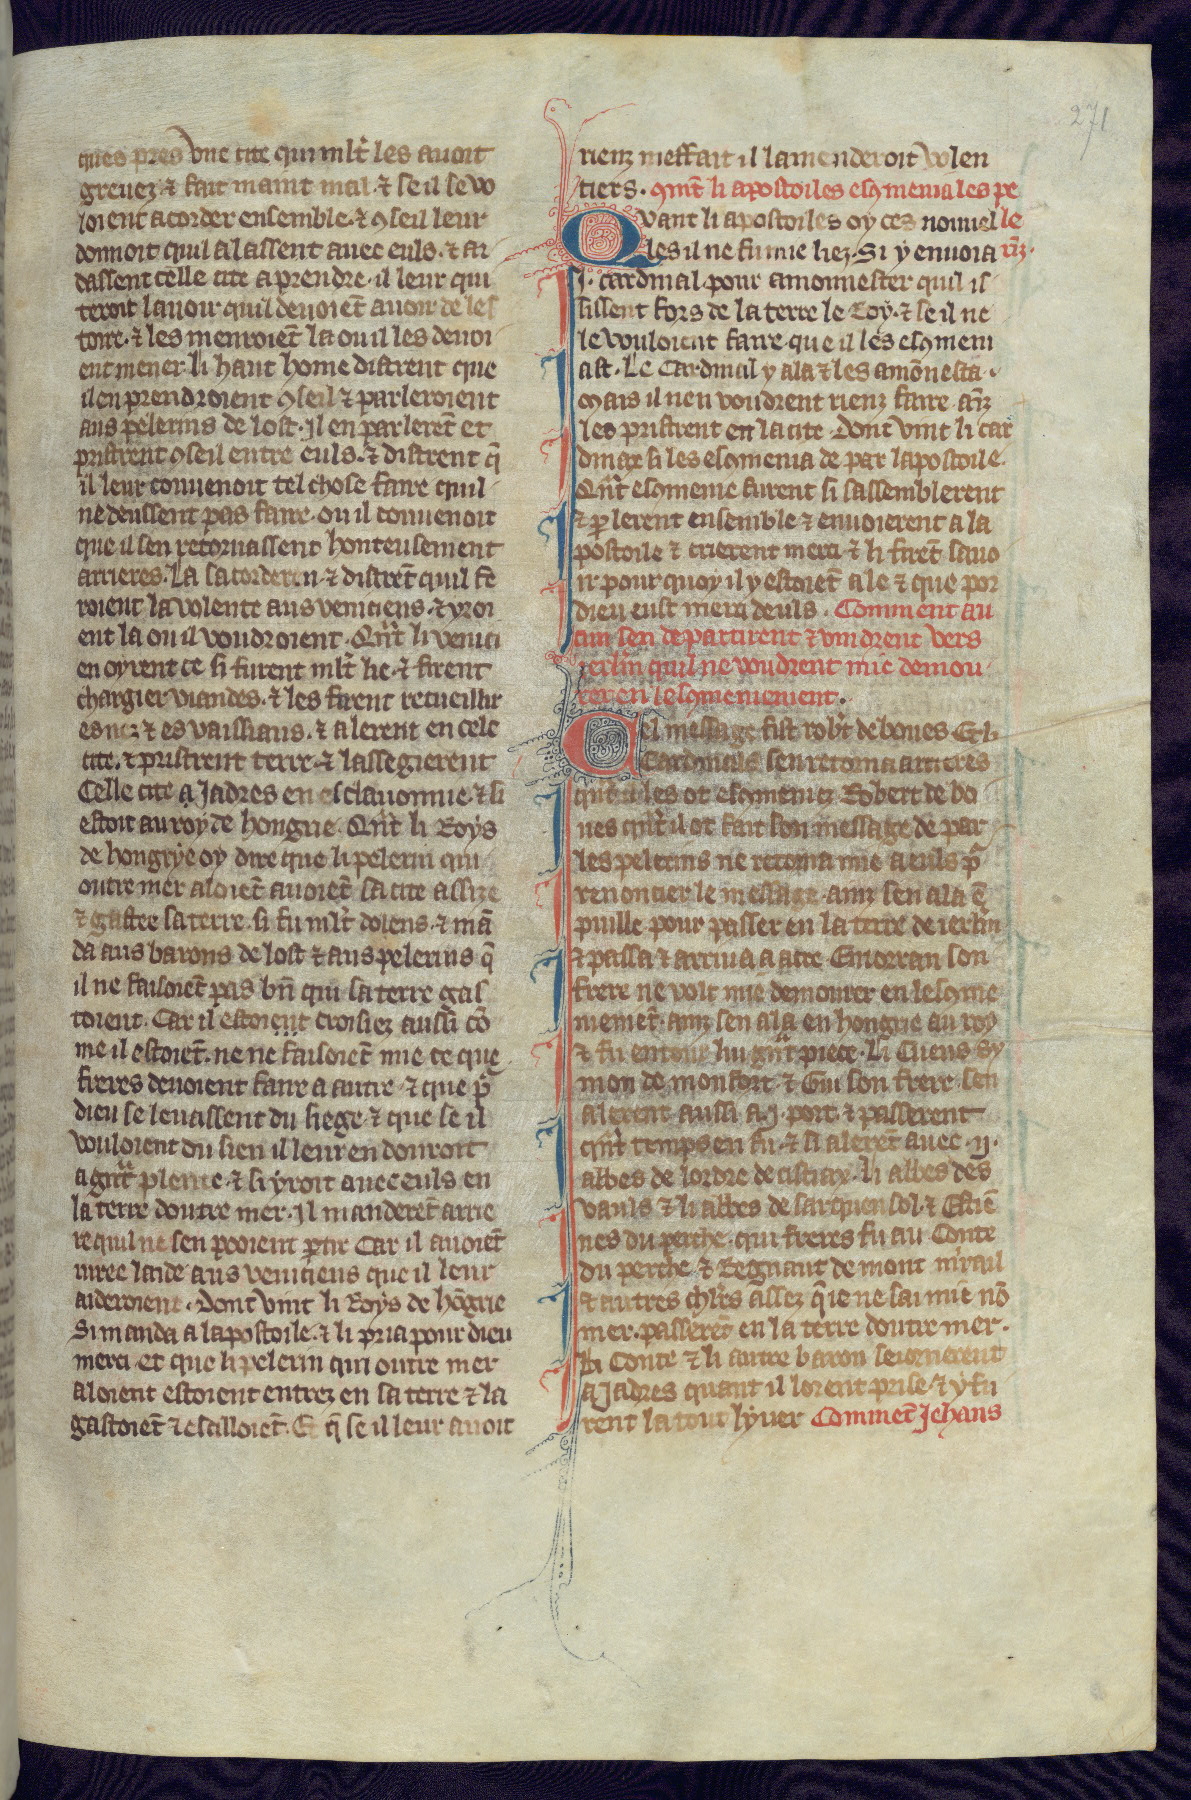 271
ques pres vne cite qui ml̃t les auoit
greuez ⁊ fait maint mal ⁊ se il se vo
loient acorder ensemble ⁊ ꝯseil leur
donnoit quil alassent auec euls ⁊ ai
dassent celle cite a prendre il leur qui
teroit lauoir quil deuoiẽt auoir de les
toire ⁊ les menroiẽt la ou il les deuoi
ent mener li haut home distrent que
il en prendroient ꝯseil ⁊ parleroient
aus pelerins de lost. Il en parlerẽt et
pristrent ꝯseil entre euls ⁊ distrent q̃
il leur conuenoit tel chose faire quil
ne deussent pas faire ou il conuenoit
que il sen retornassent honteusement
arrieres. La sacorderen ⁊ distrẽt quil fe
roient la volente aus veniciens ⁊ yroi
ent la ou il voudroient. Qñt li venici
en oyrent ce si furent ml̃t lie ⁊ firent
chargier viandes ⁊ les firent recueillir
es nez ⁊ es vaissiaus ⁊ alerent en cele
cite ⁊ pristrent terre ⁊ lassegierent
Celle cite a Jadres en esclauonnie ⁊ si
estoit au roy de hongrie. Qñt li Roys
de hongrye oy dire que li pelerin qui
outre mer aloiẽt auoiẽt sa cite assize
⁊ gastee sa terre si fu ml̃t dolens ⁊ mã
da aus barons de lost ⁊ aus pelerins q̃
il ne faisoiẽt pas bñ qui sa terre gas
toient. Car il estoient croisiez aussi cõ
me il estoiẽt ne ne faisoiẽt mie ce que
freres deuoient faire a autre ⁊ que p̃
dieu se leuassent du siege ⁊ que se il
vouloient du sien il leur en donroit
a grãt plente ⁊ si yroit auec euls en
la terre doutre mer. Il manderẽt arrie
re quil ne sen pooient ꝑtir Car il auoiẽt
iuree laide aus veniciens que il leur
aideroient. Dont vint li Roys de hõgrie
Si manda a lapostoile ⁊ li pria pour dieu
merci et que li pelerin qui outre mer
aloient estoient entrez en sa terre ⁊ la
gastoiẽt ⁊ escilloiẽt. Et q̃ se il leur auoit
rienz meffait il lamenderoit volen
tiers. ꝯmẽt li apostoiles esꝯmenia les pe
Quant li apostoiles oy ces nouuel le
les il ne fu mie liez. Si y enuoia rĩz.
.I. cardinal pour amonnester quil is
sissent fors de la terre le Roy ⁊ se il ne
le vouloient faire que il les esꝯmeni
ast. Le Cardinal y ala ⁊ les amõnesta.
Mais il nen voudrent rienz faire ainz
les pristrent en la cite Dont vint li car
dinax si les esꝯmenia de par lapostoile.
Qñt esꝯmenie furent si sassemblerent
⁊ ꝑlerent ensemble ⁊ enuoierent a la
postoile ⁊ crierent merci ⁊ li firẽt sauo
ir pour quoy il y estoiẽt ale ⁊ que por
dieu eust merci deuls. Comment au
cun sen departirent ⁊ vindrent vers
ierlm̃ quil ne voudrent mie demou
rer en lesꝯmeniement.
Cel message fist rob̃t de boues Et li
Cardinals sen retorna arrieres
qñt il les ot esꝯmeniez Robert de bo
ues qñt il ot fait son message de par
les pelerins ne retorna mie a euls p̃
renoncier le message ainz sen ala ẽ
puille pour passer en la terre de ierlm̃
⁊ passa ⁊ arriua a acre Enioran son
frere ne volt mie demourer en lesꝯme
niemẽt ainz sen ala en hongrie au roy
⁊ fu entour lui grãt piece. Li Cuens sy
mon de monfort ⁊ Gui son frere sen
alerent aussi a .I. port ⁊ passerent
qñt temps en fu ⁊ si alerẽt auec .ij.
abbes de lordre de cistiax. li abbes des
vauls ⁊ li abbes de sarquensol ⁊ Estiẽ
nes du perche qui freres fu au Conte
du perche ⁊ Regnaut de mont mirail
⁊ autres chlr̃s assez q̃ ie ne sai mie nõ
mer. passerẽt en la terre doutre mer.
Li Conte ⁊ li autre baron seiornerent
a Jadres quant il lorent prise ⁊ y fu
rent la tout lyuer Commẽt Jehans